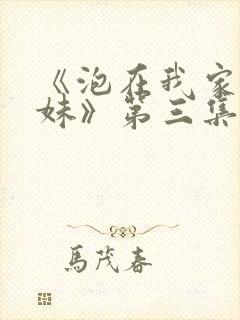 《泡在我家
妹》第三集
馬茂春